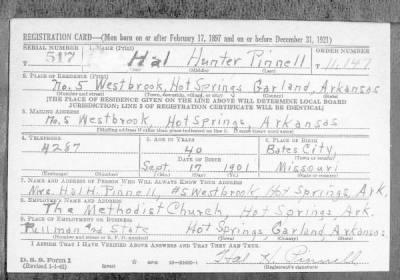 REGISTRATION CARD—(Men born on or after February 17, 1897 and on or before December 31, 1921)
SERIAL NUMBER 1. NAME (Print) ORDER NUMBER
T 517 Hal Hunter Pinnell T 11,147
(First) (Middle) (Last)
2. PLACE OF RESIDENCE (Print)
No. 5 Westbrook, Hot Springs Garland, Arkansas
(Number and street) (Town, township, village, or city) (County) (State)
[THE PLACE OF RESIDENCE GIVEN ON THE LINE ABOVE WILL DETERMINE LOCAL BOARD
JURISDICTION; LINE 2 OF REGISTRATION CERTIFICATE WILL BE IDENTICAL]
3. MAILING ADDRESS
No. 5 Westbrook, Hot Springs, Arkansas
[Mailing address if other than place indicated on line 2. If same insert word same]
4. TELEPHONE 5. AGE IN YEARS 6. PLACE OF BIRTH
4287 40 Bates City,
DATE OF BIRTH (Town or county)
Sept. 17 1901 Missouri
(Exchange) (Number) (Mo.) (Day) (Yr.) (State or country)
7. NAME AND ADDRESS OF PERSON WHO WILL ALWAYS KNOW YOUR ADDRESS
Mrs. Hal H. Pinnell #5 Westbrook, Hot Springs, Ark.
8. EMPLOYER'S NAME AND ADDRESS
The Methodist Church, Hot Springs, Ark.
9. PLACE OF EMPLOYMENT OR BUSINESS
Pullman and State Hot Springs Garland Arkansas
(Number and street or R. F. D. number) (Town) (County) (State)
I AFFIRM THAT I HAVE VERIFIED ABOVE ANSWERS AND THAT THEY ARE TRUE.
D. S. S. Form 1
(Revised 1-1-42) (over) 16—21630-1 Hal H. Pinnell
(Registrant's signature)